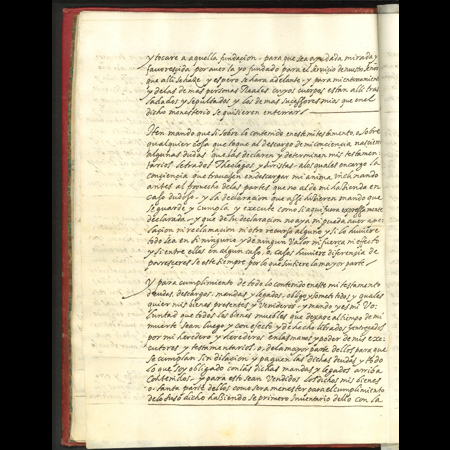 y tocare a aquella fundacion, para que sea ayudada mirada y
favorescida por aver la yo fundado para el servicio de nuestro señor
que alli se haze, y espero se hara adelante, y para mi enterramiento
y de las demas personas Reales cuyos cuerpos estan alli tras
ladados y sepultados, y los demas successores mios que en el
dicho monasterio se quisieren enterrar
Iten mando que si sobre lo contenido en este mi testamento, o sobre
qualquier cosa que toque al descargo de mi conciencia, nascieren
algunas dudas que las declaren y determinen mis testamen
tarios, letrados Theologos, y Juristas, a los quales encargo la
consciencia que traten en descargar mi anima inclinando
antes al provecho de las partes que no al de mi hazienda en
caso dudoso, y la declaracion que assi hizieren mando que
se guarde y cumpla y execute como si aqui fuera expressamente
declarada, y que de su declaracion no aya ni pueda aver ape
lacion ni reclamacion ni otro recurso alguno y si lo huviere
todo sea en si ninguno y de ningun valor ni fuerza ni efecto
y si entre ellos en algun caso, o casos huviere diferencia de
paresceres se este siempre por lo que sintiere la mayor parte
Y para cumplimiento de todo lo contenido en este mi testamento
deudas, descargos, mandas y legados, obligo y someto todos y quales
quier mis bienes presentes y venideros, y mando y es mi Vo
luntad que todos los bienes muebles que dexare al tiempo de mi
muerte sean luego y con efecto y de hecho librados y entregados
por mi heredero y herederos en las manos y poder de mis exe
cutores y testamentarios, o, de la mayor parte dellos para que
se cumplan sin dilacion y paguen las dichas deudas y todo
lo que soy obligado con las dichas mandas y legados arriba
contenidos, y para esto sean vendidos los dichos mis bienes
o, tanta parte dellos como sera menester para el cumplimiento
de lo suso dicho haziendo se primero inventario dello con la